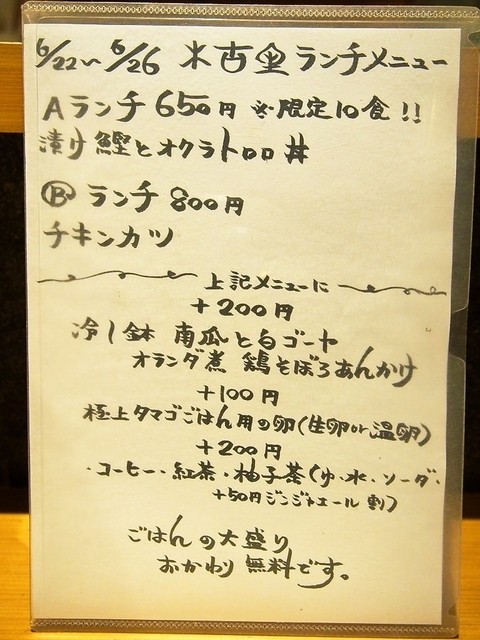 6/22〜6/26 木古里ランチメニュー
Aランチ 650円 ※限定10食!!
漬け鰹とオクラトロロ丼
Ⓑランチ 800円
チキンカツ
上記メニューに
+200円
冷し鉢 南瓜と白ゴーヤ
オランダ煮 鶏そぼろあんかけ
+100円
極上タマゴごはん用の卵(生卵or温卵)
+200円
・コーヒー・紅茶・柚子茶(ゆ・水・ソーダ・
+50円ジンジャエール割)
ごはんの大盛り
おかわり無料です。